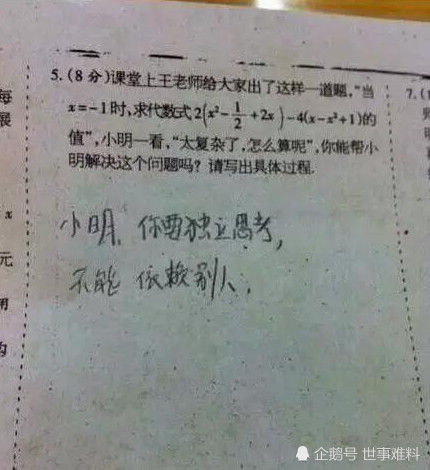 5.(8分)课堂上王老师给大家出了这样一道题,“当
x=-1时,求代数式2(x²-1/2+2x)-4(x-x²+1)的
值”,小明一看,“太复杂了,怎么算呢”,你能帮小
明解决这个问题吗?请写出具体过程.
小明,你要独立思考,
不能依赖别人.
每
展
x
元
用
的
7.(1
企鹅号 世事难料